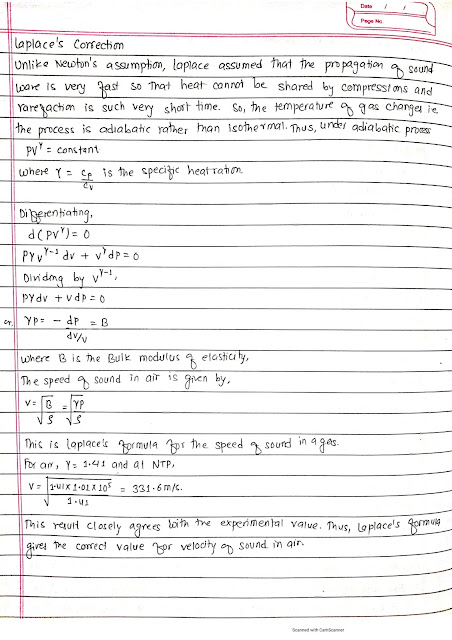 Date / /
Page No.
Laplace's Correction
Unlike Newton's assumption, laplace assumed that the propagation of sound
wave is very fast so that heat cannot be shared by compressions and
rarefaction is such very short time. So, the temperature of gas changes ie.
the process is adiabatic rather than isothermal. Thus, under adiabatic process
PV^γ = constant
where γ = Cp/Cv is the specific heat ration
Differentiating,
d(PV^γ) = 0
Pγv^γ-1 dv + v^γ dp = 0
Dividing by v^γ-1,
Pγdv + vdp = 0
or, γP = - dp/(dv/v) = B
where B is the Bulk modulus of elasticity,
The speed of sound in air is given by,
v = √(B/ρ) = √(γP/ρ)
This is laplace's formula for the speed of sound in a gas.
For air, γ = 1.41 and at NTP,
v = √(1.41 x 1.01 x 10^5 / 1.41) = 331.6 m/s.
This result closely agrees with the experimental value. Thus, Laplace's formula
gives the correct value for velocity of sound in air.
Scanned with CamScanner